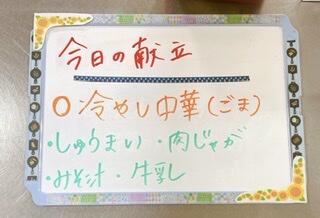 今日の献立
○ 冷やし中華(ごま)
・しゅうまい ・肉じゃが
・みそ汁 ・牛乳